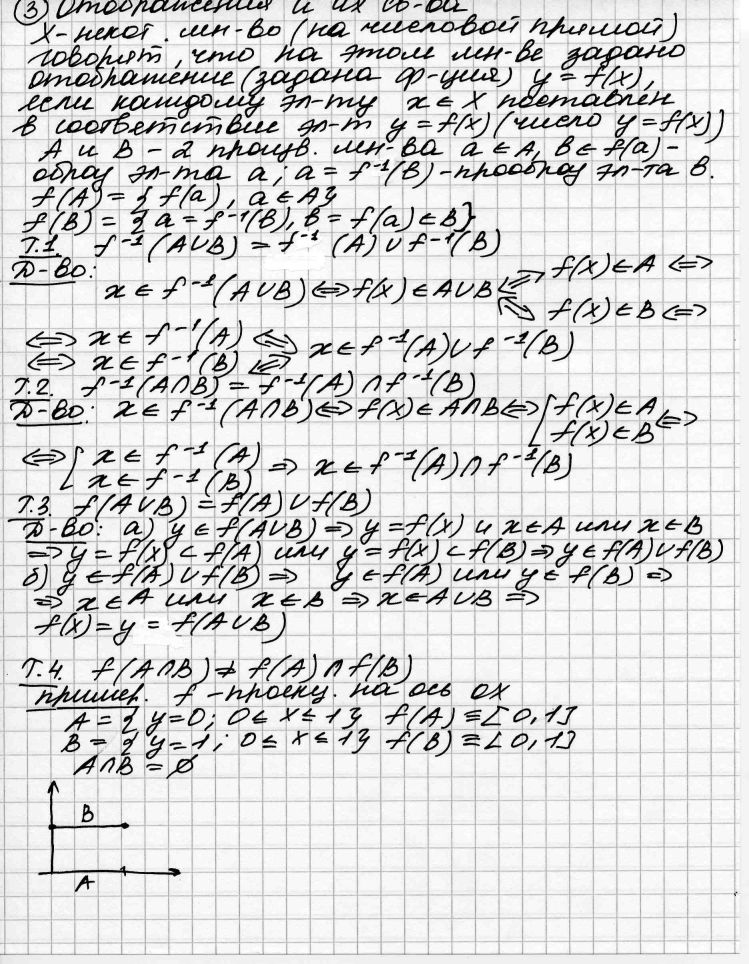 ③ Отображения и их св-ва
X-некот. мн-во (на числовой прямой)
говорят, что на этом мн-ве задано
отображение (задана ф-ция) y = f(x),
если каждому эл-ту x ∈ X поставлен
в соответствие эл-т y = f(x) (число y = f(x))
A и B - 2 произв. мн-ва a ∈ A, b ∈ f(a) -
образ эл-та a; a = f⁻¹(b) - прообраз эл-та b.
f(A) = { f(a), a ∈ A}
f(B) = { a = f⁻¹(b), b = f(a) ∈ B}
Т.1. f⁻¹(A∪B) = f⁻¹ (A) ∪ f⁻¹(B)
Д-во:
x ∈ f⁻¹(A∪B) ⇔ f(x) ∈ A∪B ⇔ f(x) ∈ A ⇔
⇔ f(x) ∈ B ⇔
⇔ x ∈ f⁻¹(A) ⇔ x ∈ f⁻¹(A) ∪ f⁻¹(B)
⇔ x ∈ f⁻¹(B) ⇔
Т.2. f⁻¹(A∩B) = f⁻¹(A) ∩ f⁻¹(B)
Д-во: x ∈ f⁻¹(A∩B) ⇔ f(x) ∈ A∩B ⇔ [ f(x) ∈ A
f(x) ∈ B ⇔
⇔ [ x ∈ f⁻¹(A)
x ∈ f⁻¹(B) ⇒ x ∈ f⁻¹(A) ∩ f⁻¹(B)
Т.3. f(A∪B) = f(A) ∪ f(B)
Д-во: а) y ∈ f(A∪B) ⇒ y = f(x) и x ∈ A или x ∈ B
⇒ y = f(x) ⊂ f(A) или y = f(x) ⊂ f(B) ⇒ y ∈ f(A) ∪ f(B)
б) y ∈ f(A) ∪ f(B) ⇒ y ∈ f(A) или y ∈ f(B) ⇒
⇒ x ∈ A или x ∈ B ⇒ x ∈ A∪B ⇒
f(x) = y = f(A∪B)
Т.4. f(A∩B) ≠ f(A) ∩ f(B)
пример. f - проекц. на ось OX
A = { y = 0; 0 ≤ x ≤ 1} f(A) ≡ [0,1]
B = { y = 1; 0 ≤ x ≤ 1} f(B) ≡ [0,1]
A∩B = ∅
B
A